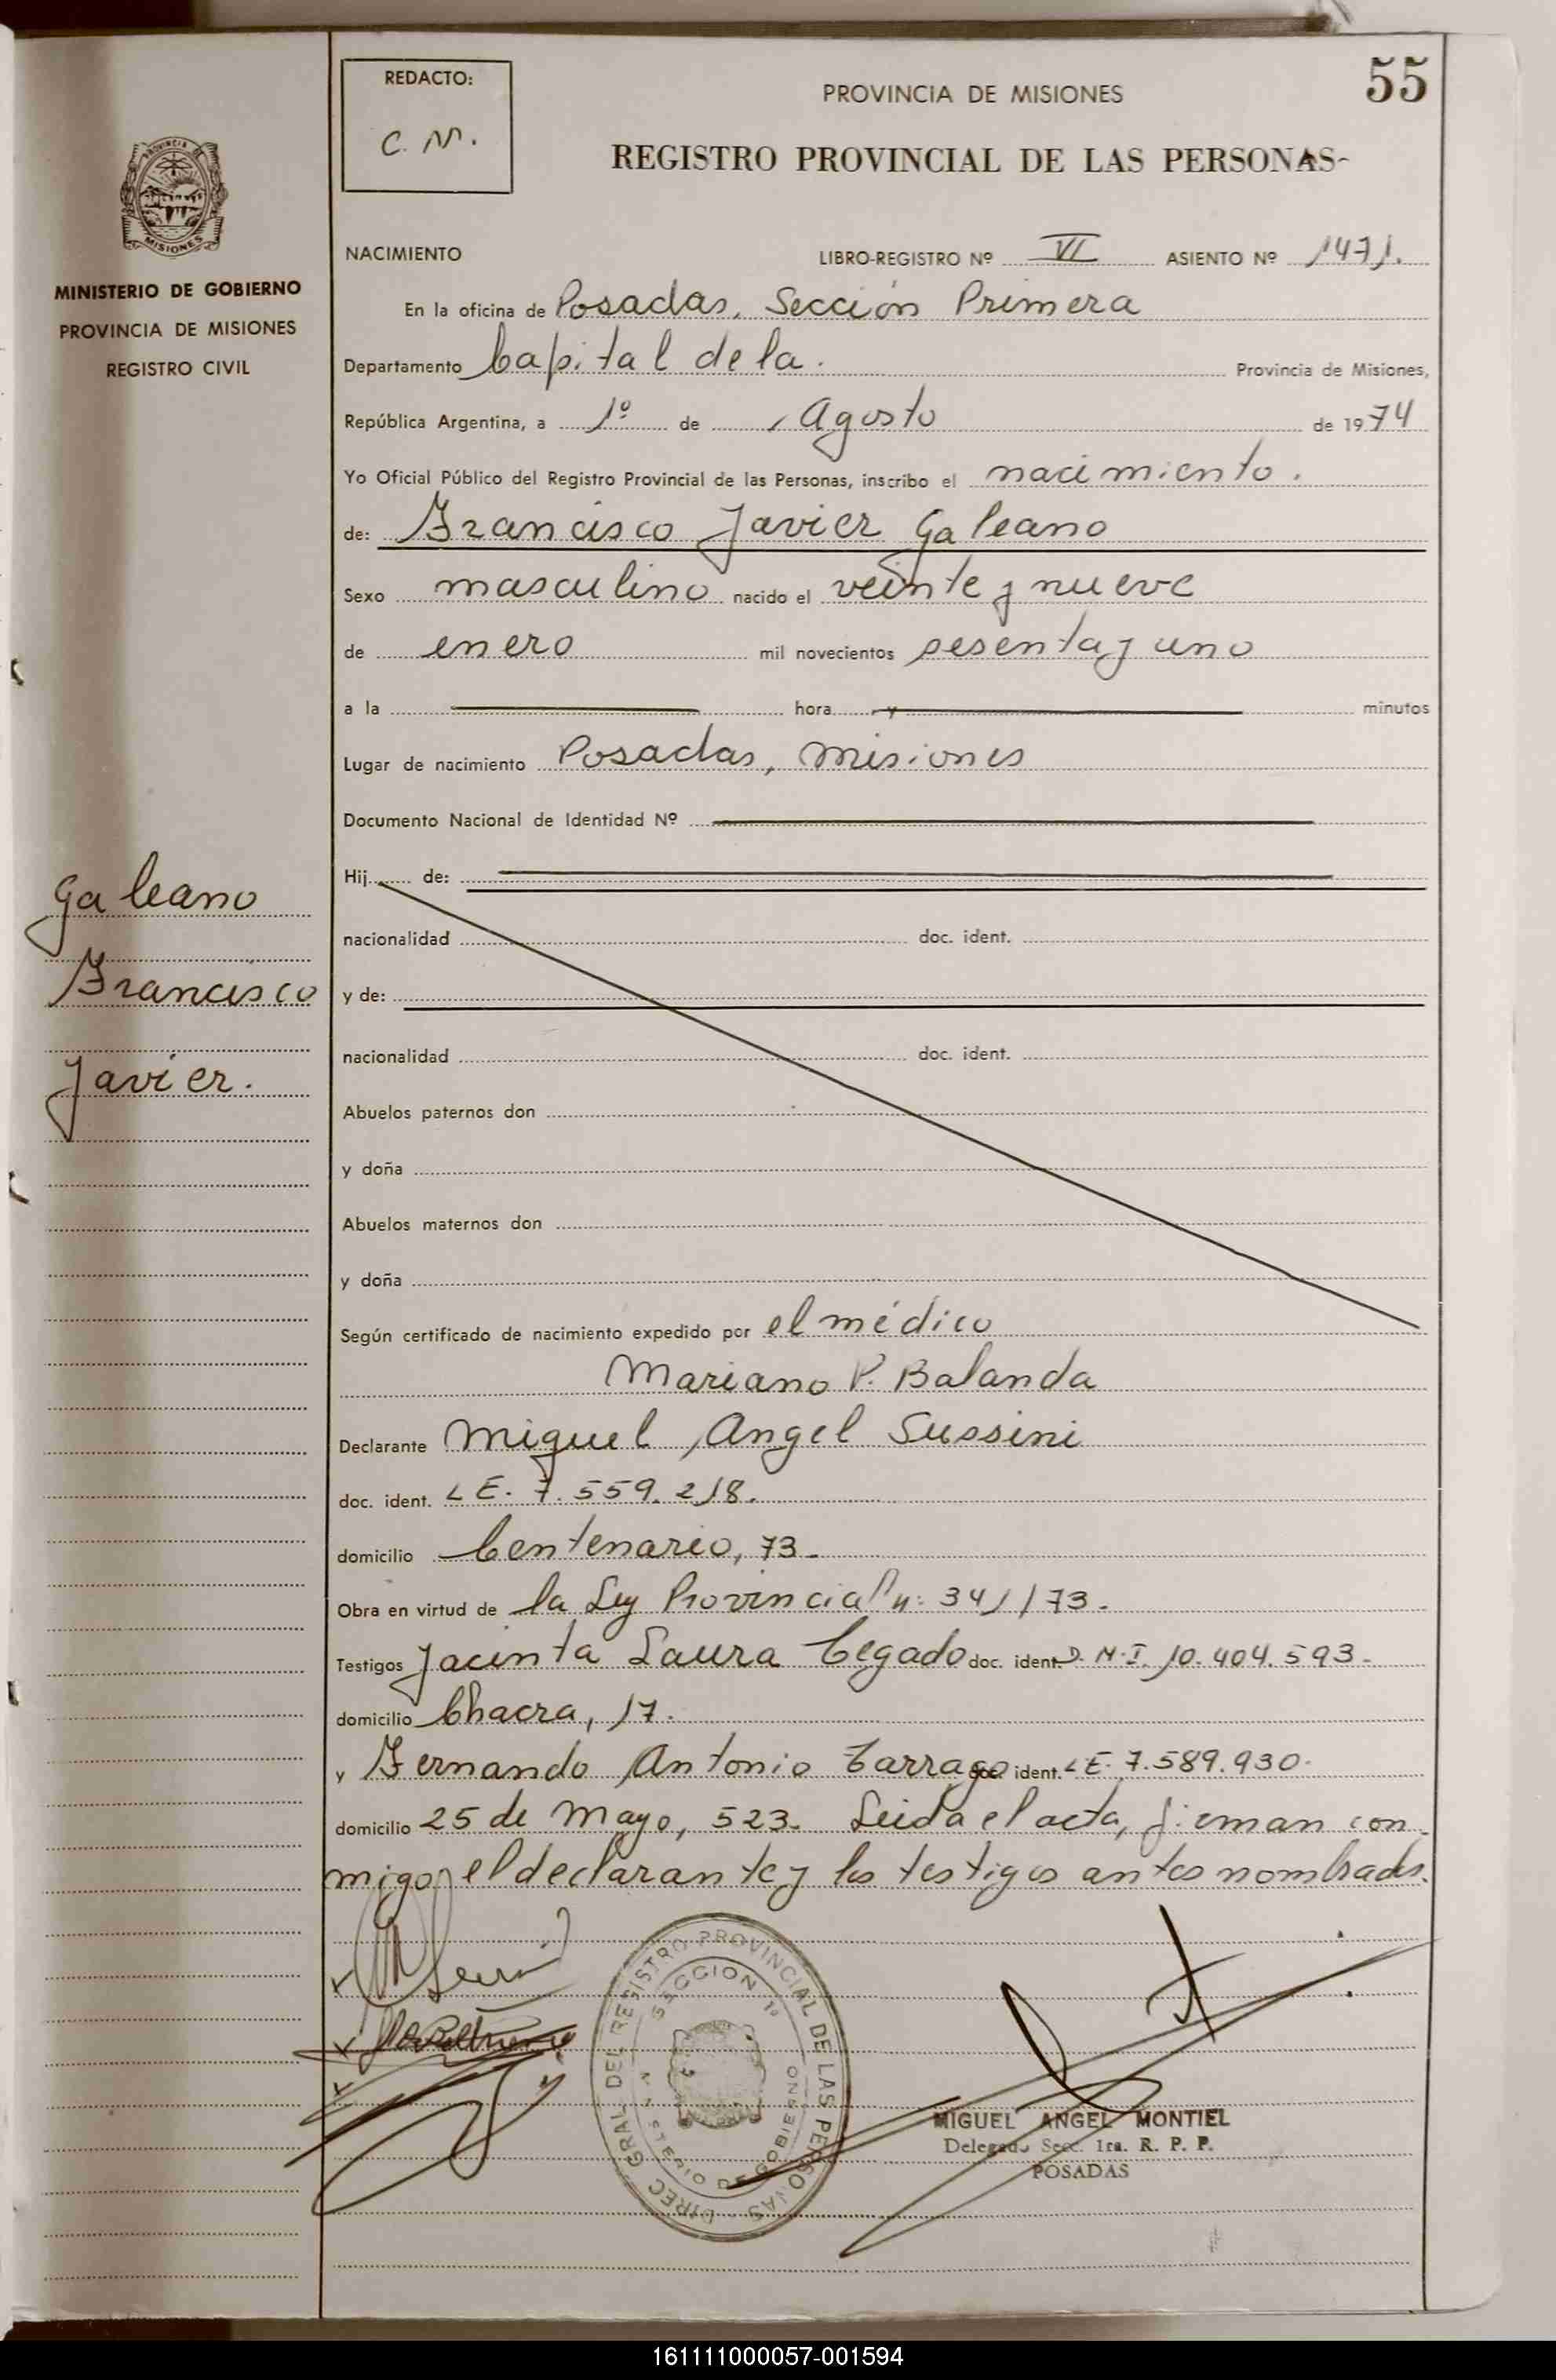 55
REDACTO:
C. M.
PROVINCIA DE MISIONES
REGISTRO PROVINCIAL DE LAS PERSONAS-
PROVINCIA DE
MISIONES
MINISTERIO DE GOBIERNO
PROVINCIA DE MISIONES
REGISTRO CIVIL
NACIMIENTO LIBRO-REGISTRO Nº VI ASIENTO Nº 1471.
En la oficina de Posadas, Sección Primera
Departamento Capital de la. Provincia de Misiones,
República Argentina, a 1º de Agosto de 1974
Yo Oficial Público del Registro Provincial de las Personas, inscribo el nacimiento.
de: Francisco Javier Galeano
Sexo masculino nacido el veinte y nueve
de enero mil novecientos sesenta y uno
a la hora y minutos
Lugar de nacimiento Posadas, Misiones
Documento Nacional de Identidad Nº
Hij de:
nacionalidad doc. ident.
y de:
nacionalidad doc. ident.
Abuelos paternos don
y doña
Abuelos maternos don
y doña
Galeano
Francisco
Javier.
Según certificado de nacimiento expedido por el médico
Mariano P. Balanda
Declarante Miguel Angel Sussini
doc. ident. L E. 7.559.218.
domicilio Centenario, 73.
Obra en virtud de la Ley Provincial n: 341/73.
Testigos Jacinta Laura Cegado doc. ident. D.N.I. 10.404.593.
domicilio Chacra, 17.
y Fernando Antonio Tarrago doc. ident. L E. 7.589.930.
domicilio 25 de Mayo, 523. Leida el acta, firman con
migo, el declarante y los testigos antes nombrados.
DIREC GRAL DEL REGISTRO PROVINCIAL DE LAS PERSONAS
SECCION 1ª
MINISTERIO DE GOBIERNO
MIGUEL ANGEL MONTIEL
Delegado Secc. 1ra. R. P. P.
POSADAS
161111000057-001594